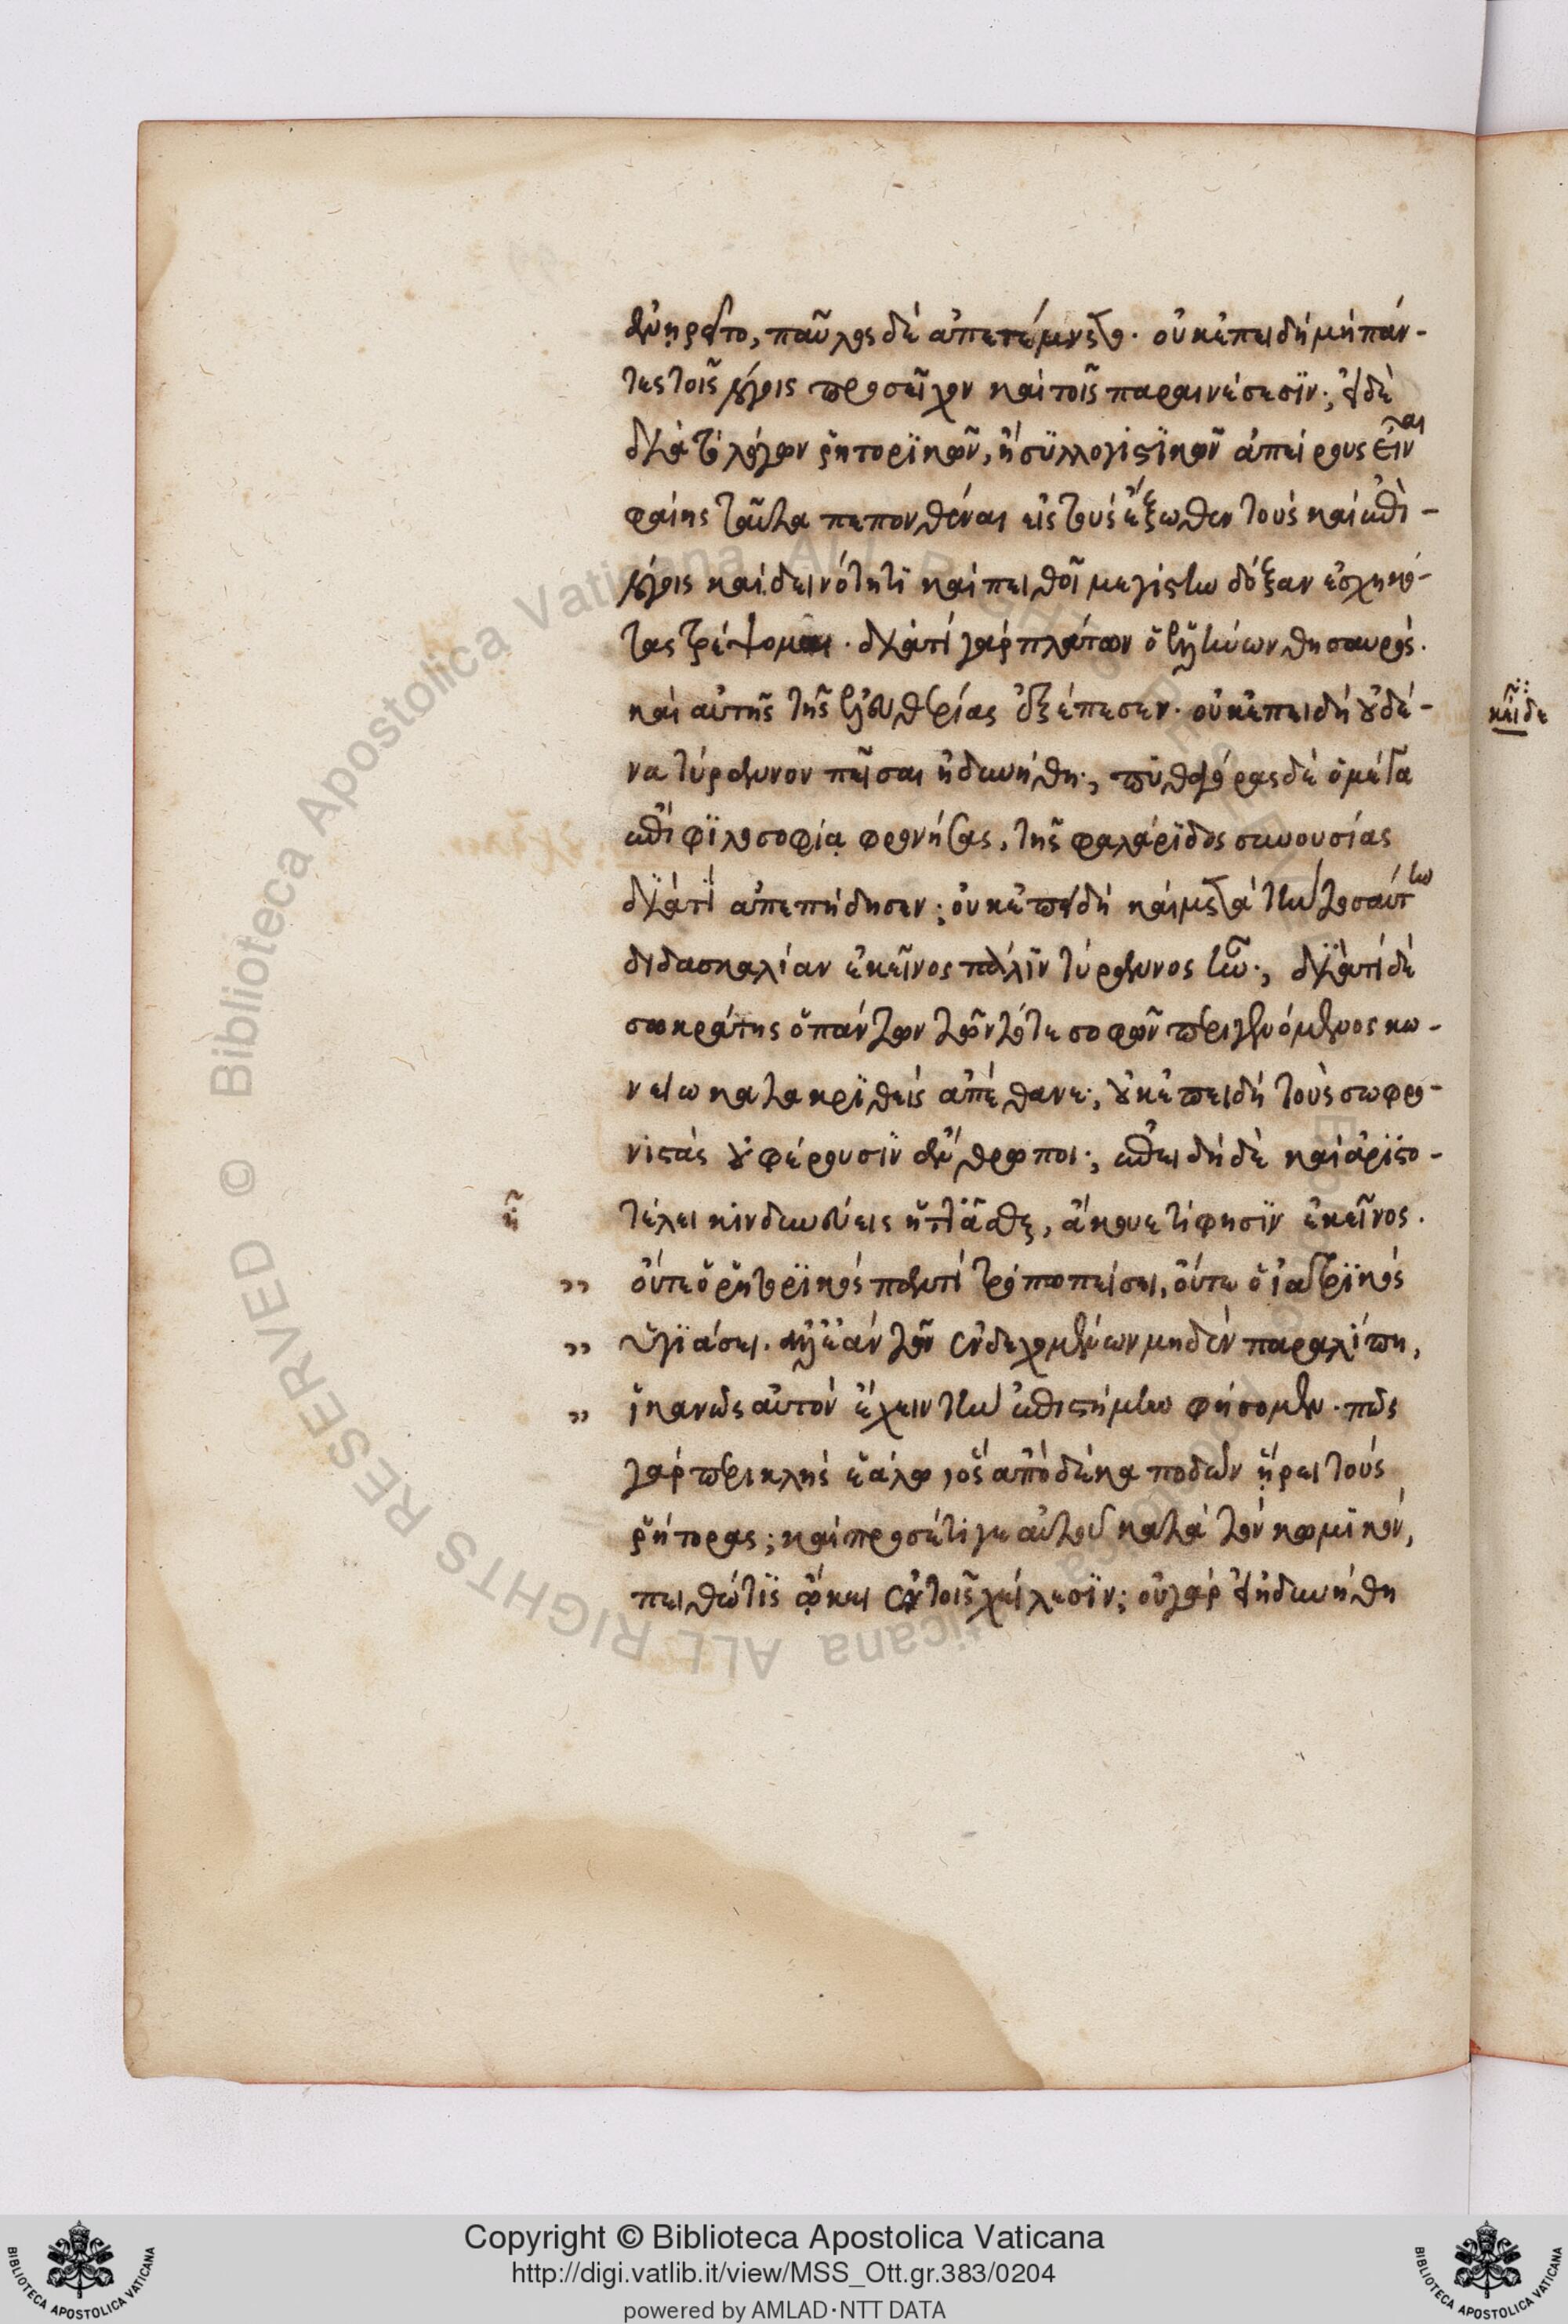 ἀνῃρεῖτο, παῦλος δὲ ἀπετέμνετο. οὐκ ἐπειδὴ μὴ πάν-
τες τοῖς λόγοις προσεῖχον καὶ τοῖς παραινέσεσϊν; εἰ δὲ
διὰ τὸ λόγων ῥητορϊκῶν, ἢ συλλογιστϊκῶν ἀπείρους εἶναι
φαίης ταῦτα πεπονθέναι εἰς τοὺς ἔξωθεν τοὺς καὶ ἐπὶ-
λόγοις καὶ δεινότητϊ καὶ πειθοῖ μεγίστην δόξαν ἐσχηκό-
τας τρέψομαι. διὰ τί γὰρ πλάτων ὁ τῶν θησαυρός.
καὶ αὐτῆς τῆς ἐλευθερίας ἐξέπεσεν. οὐκ ἐπειδὴ οὐδέ-
να τύραννον πεῖσαι ἠδυνήθη; πυθαγόρας δὲ ὁ μέγα
ἐπὶ φϊλοσοφίᾳ φρονήσας, τῆς φαλάρϊδος συνουσίας
διὰ τί ἀπεπήδησεν; οὐκ ἐπειδὴ καὶ μετὰ τὴν τοσαύτην
διδασκαλίαν ἐκεῖνος πάλϊν τύραννος ἦν; διὰ τί δὲ
σωκράτης ὁ πάντων τῶν τότε σοφῶν περιγενόμενος κω-
νείω κατακρϊθεὶς ἀπέθανε; οὐκ ἐπειδὴ τοὺς σωφρο-
νιστὰς οὐ φέρουσϊν ἄνθρωποι; ἐπειδὴ δὲ καὶ ἀρϊστο-
τέλει κινδυνεύεις ἠπιᾶσθαι, ἄκουε τί φησϊν ἐκεῖνος.
οὔτε ὁ ῥητορϊκὸς παντὶ τρόπω πείσει, οὔτε ὁ ἰατρϊκὸς
ὑγϊάσει. ἀλλ' ἐὰν τῶν ἐνδεχομένων μηδὲν παραλίπη,
ἱκανῶς αὐτὸν ἔχειν τὴν ἐπιστήμην φήσομεν. πῶς
γὰρ περικλῆς ἑάλω, ὃς ἀπὸ δέκα ποδῶν ᾕρει τοὺς
ῥήτορας; καὶ προσέτι γε αὐτοῦ κατὰ τὸν κωμϊκὸν,
πειθώ τϊς ᾤκει ἐν τοῖς χείλεσϊν; οὐ γὰρ εἰ ἠδυνήθη
κεῖ δε